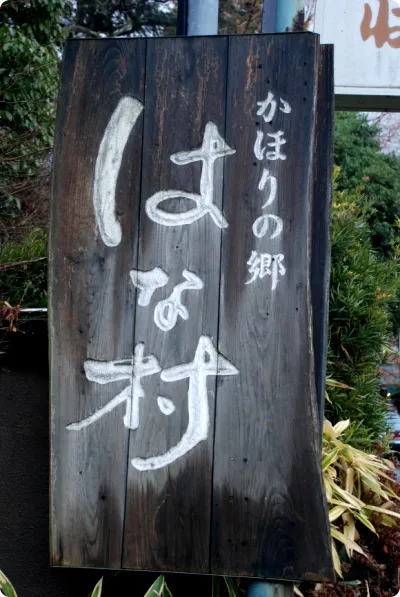 かほりの郷
はな村